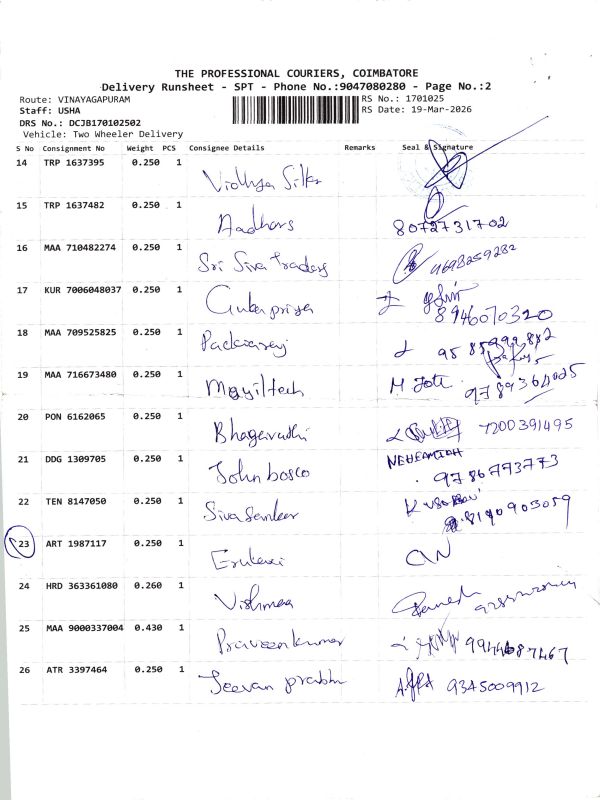 THE PROFESSIONAL COURIERS, COIMBATORE
Delivery Runsheet - SPT - Phone No.:9047080280 - Page No.:2
Route: VINAYAGAPURAM RS No.: 1701025
Staff: USHA RS Date: 19-Mar-2026
DRS No.: DCJB170102502
Vehicle: Two Wheeler Delivery
S No Consignment No Weight PCS Consignee Details Remarks Seal & Signature
14 TRP 1637395 0.250 1 Vidhya Silks
15 TRP 1637482 0.250 1 Aadhars 8072731702
16 MAA 710482274 0.250 1 Sri Siva Traders 9698259282
17 KUR 7006048037 0.250 1 8946070320
18 MAA 709525825 0.250 1
19 MAA 716673480 0.250 1 Mayiltech
20 PON 6162065 0.250 1 7200391495
21 DDG 1309705 0.250 1 John bosco NEHEAMIAH
9786773773
22 TEN 8147050 0.250 1 Siva Sankar
8190903059
23 ART 1987117 0.250 1
24 HRD 363361080 0.260 1
25 MAA 9000337004 0.430 1 Praveen kumar
26 ATR 3397464 0.250 1 Jeevan prabhu 9345009912